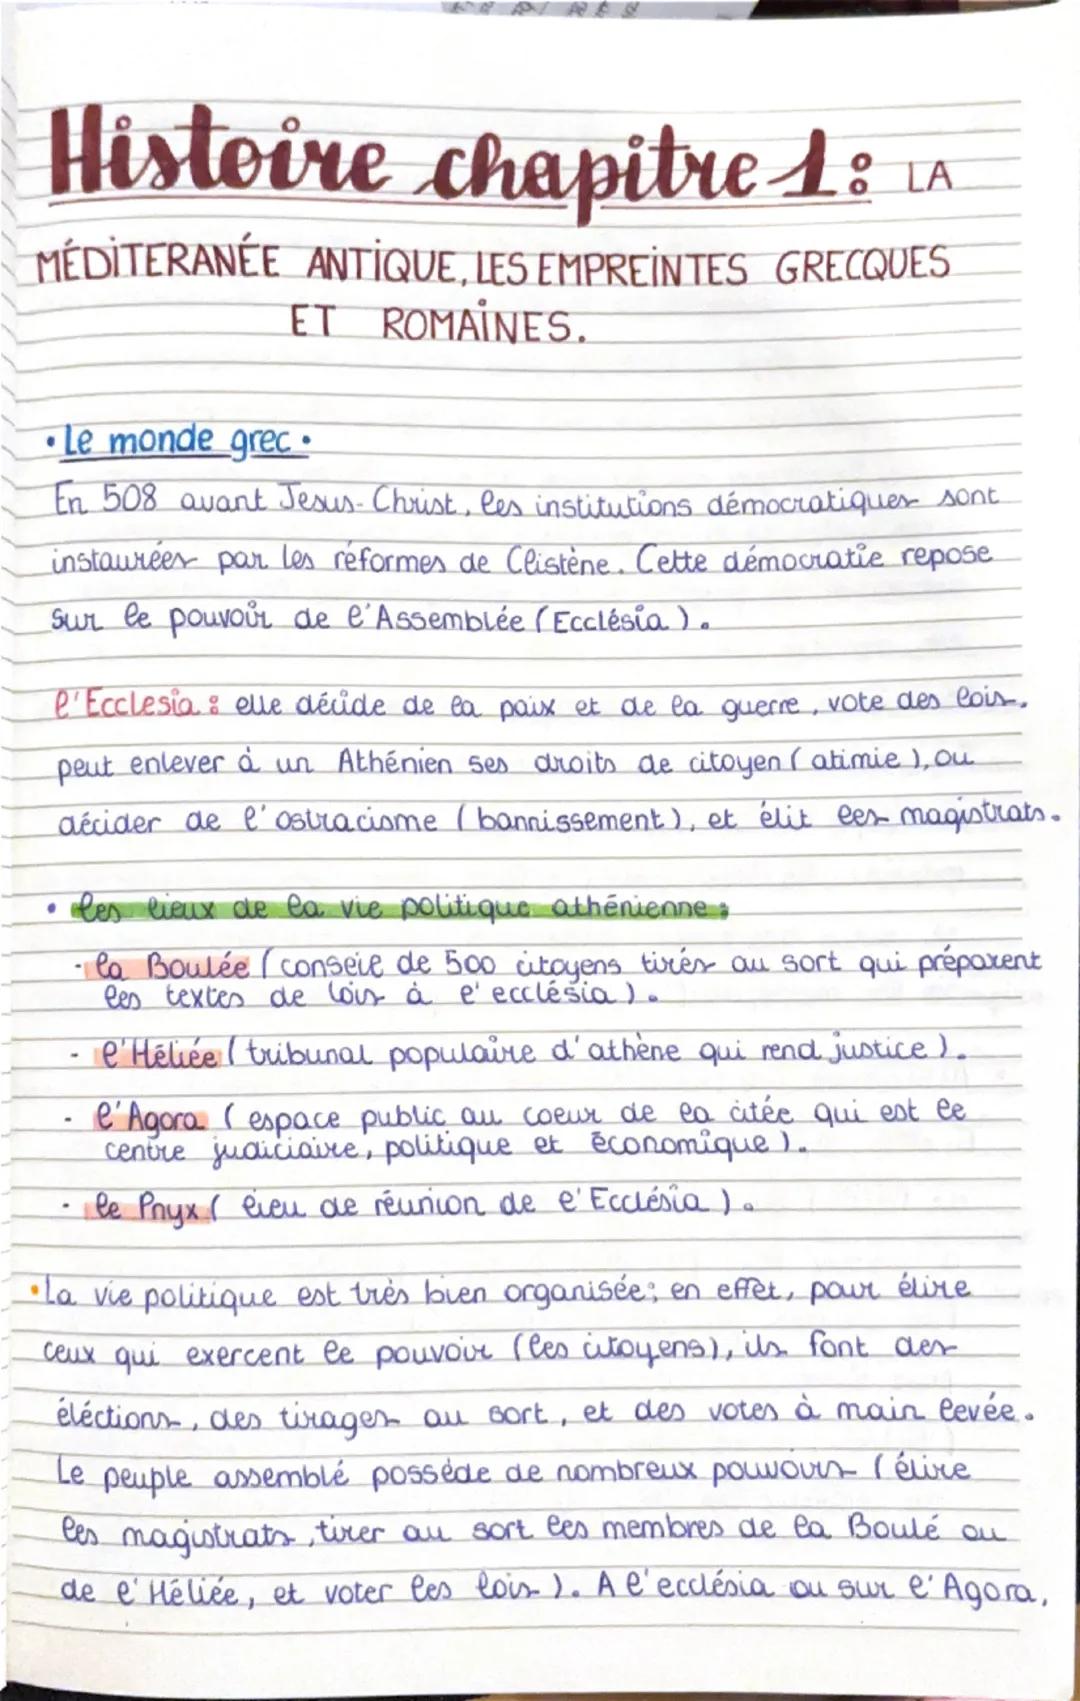 Histoire chapitre 1: LA
MÉDITERANÉE ANTIQUE, LES EMPREINTES GRECQUES
ET ROMAINES.
• Le monde grec •
En 508 avant Jesus-Christ, les institutions démocratiques sont
instaurées par les réformes de Clistène. Cette démocratie repose
sur le pouvoir de l'Assemblée (Ecclésia).
l'Ecclesia : elle décide de la paix et de la guerre, vote des lois,
peut enlever à un Athénien ses droits de citoyen (atimie), ou
décider de l'ostracisme (bannissement), et élit les magistrats.
• les lieux de la vie politique athénienne :
- la Boulée (conseil de 500 citoyens tirés au sort qui préparent
les textes de lois à l'ecclésia).
- l'Héliée (tribunal populaire d'athène qui rend justice).
- l'Agora (espace public au coeur de la citée qui est le
centre judiciaire, politique et économique).
- le Pnyx (lieu de réunion de l'Ecclésia).
• La vie politique est très bien organisée; en effet, pour élire
ceux qui exercent le pouvoir (les citoyens), ils font des
éléctions, des tirages au sort, et des votes à main levée.
Le peuple assemblé posséde de nombreux pouvoirs (élire
les magistrats, tirer au sort les membres de la Boulé ou
de l'Héliée, et voter les lois). A l'ecclésia ou sur l'Agora,